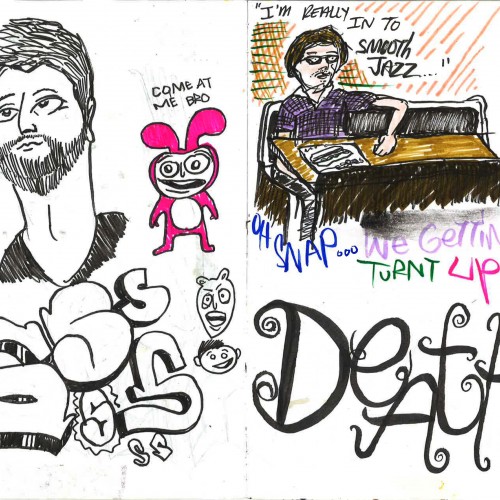 COME AT
ME BRO
S
S
S S
"I'M REALLY
IN TO
SMOOTH
JAZZ..."
OH
SNAP... WE GETTIN
TURNT UP
DeAtt